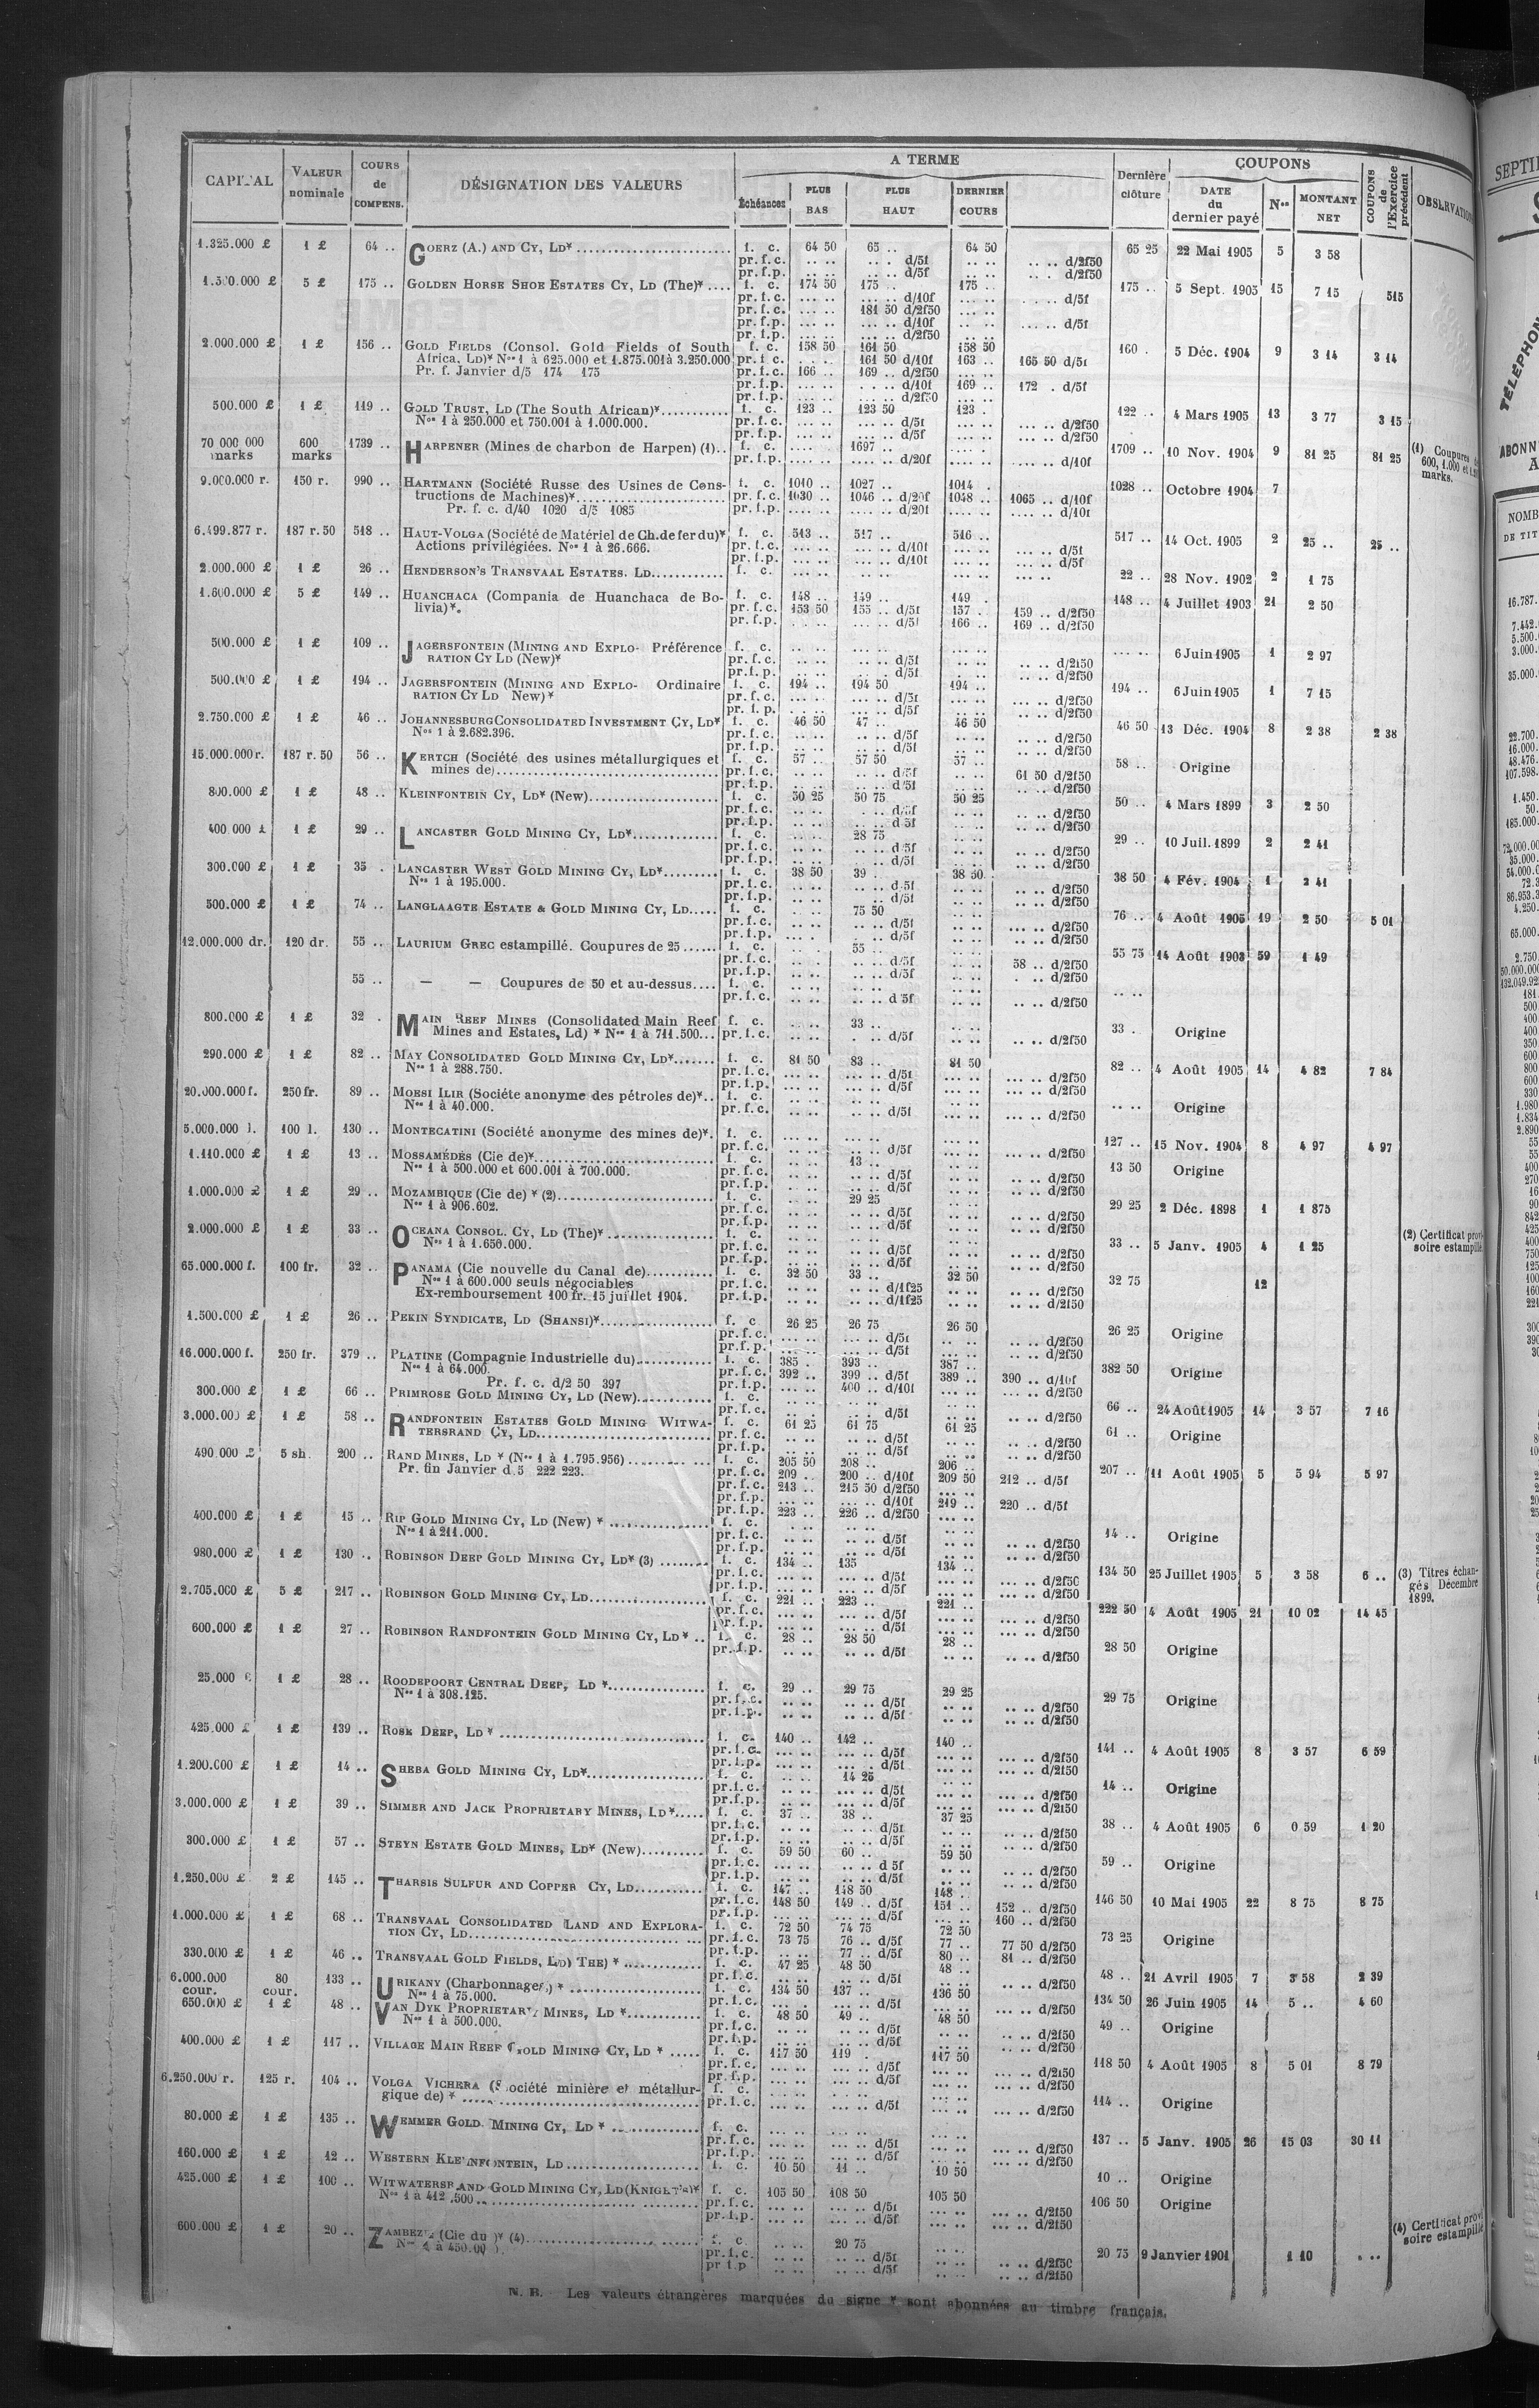 CAPITAL VALEUR nominale COURS de COMPENS. DÉSIGNATION DES VALEURS A TERME Échéances PLUS BAS PLUS HAUT DERNIER COURS Dernière clôture COUPONS DATE du dernier payé Nos MONTANT NET COUPONS de l'Exercice précédent
1.325.000 £ 1 £ 64 .. GOERZ (A.) AND CY, LD* f. c. 64 50 65 .. 64 50 65 25 22 Mai 1905 5 3 58
pr. f. c. .. .. .. . d/5f .. .. .. .. d/2f50
pr. f. p. .. .. .. .. d/5f .. .. .. . d/2f50
1.500.000 £ 5 £ 175 .. GOLDEN HORSE SHOE ESTATES CY, LD (The)* .... f. c. 174 50 175 .. 175 .. 175 .. 5 Sept. 1905 15 7 15 515
pr. f. c. ... .. ... .. d/10f ... .. .. .. d/5f
pr. f. c. ... .. 181 50 d/2f50 ... ..
pr. f. p. ... .. ... .. d/10f ... .. d/5f
pr. f. p. ... .. ... .. d/2f50
2.000.000 £ 1 £ 156 .. GOLD FIELDS (Consol. Gold Fields of South f. c. 158 50 161 50 158 50 160 . 5 Déc. 1904 9 3 14 3 14
Africa, LD)* Nos 1 à 625.000 et 1.875.001 à 3.250.000 pr. f. c. .. .. 161 50 d/10f 163 .. 165 50 d/5f
Pr. f. Janvier d/5 174 175 pr. f. c. 166 .. 169 .. d/2f50 ... ..
pr. f. p. ... .. .. .. d/10f 169 .. 172 . d/5f
pr. f. p. ... .. ... .. d/2f50
500.000 £ 1 £ 119 .. GOLD TRUST, LD (The South African)* f. c. 123 .. 123 50 123 . 122 .. 4 Mars 1905 13 3 77 3 15
Nos 1 à 250.000 et 750.001 à 1.000.000. pr. f. c. ... .. ... .. d/5f ... .. ... .. d/2f50
pr. f. p. ... .. ... .. d/5f ... .. ... .. d/2f50
70 000 000 marks 600 marks 1739 .. HARPENER (Mines de charbon de Harpen) (1).. f. c. .... 1697 .. 1709 .. 10 Nov. 1904 9 81 25 81 25 (1) Coupures
pr. f. p. .... .. .... .. d/20f .... .. .... .. d/10f 600, 1.000 et
marks.
9.000.000 r. 150 r. 990 .. HARTMANN (Société Russe des Usines de Cons- f. c. 1010 .. 1027 .. 1014 . 1028 .. Octobre 1904 7
tructions de Machines)* pr. f. c. 1030 .. 1046 .. d/20f 1048 .. 1065 .. d/10f
Pr. f. c. d/40 1020 d/5 1085 pr. f. p. .... .. .... .. d/20f .... .. d/10f
6.499.877 r. 187 r. 50 518 .. HAUT-VOLGA (Société de Matériel de Ch. de fer du)* f. c. 513 .. 517 .. 516 .. 517 .. 14 Oct. 1905 2 25 .. 25 ..
Actions privilégiées. Nos 1 à 26.666. pr. f. c. ... .. ... .. d/10f ... .. ... .. d/5f
pr. f. p. ... .. ... .. d/10f ... .. ... .. d/5f
2.000.000 £ 1 £ 26 .. HENDERSON'S TRANSVAAL ESTATES. LD f. c. ... .. .. .. ... .. 22 .. 28 Nov. 1902 2 1 75
1.600.000 £ 5 £ 149 .. HUANCHACA (Compania de Huanchaca de Bo- f. c. 148 .. 149 .. 149 . 148 .. 4 Juillet 1903 21 2 50
livia)*. pr. f. c. 153 50 155 .. d/5f 157 . 159 .. d/2f50
pr. f. p. .. .. ... .. d/5f 166 .. 169 .. d/2f50
500.000 £ 1 £ 109 .. JAGERSFONTEIN (MINING AND EXPLO- Préférence f. c. ... .. .. .. ... .. ... .. 6 Juin 1905 1 2 97
RATION CY LD (New)* pr. f. c. ... .. .. .. d/5f .. .. .. .. d/2f50
pr. f. p. ... .. .. .. d/5f .. .. .. .. d/2f50
500.000 £ 1 £ 194 .. JAGERSFONTEIN (MINING AND EXPLO- Ordinaire f. c. 194 .. 194 50 194 .. 194 .. 6 Juin 1905 1 7 15
RATION CY LD New)* pr. f. c. ... .. ... .. d/5f ... .. .. .. d/2f50
pr. f. p. .. .. ... .. d/5f .. .. .. .. d/2f50
2.750.000 £ 1 £ 46 .. JOHANNESBURG CONSOLIDATED INVESTMENT CY, LD* f. c. 46 50 47 .. 46 50 46 50 13 Déc. 1904 8 2 38 2 38
Nos 1 à 2.682.396. pr. f. c. .. .. .. .. d/5f .. .. .. .. d/2f50
pr. f. p. .. .. .. .. d/5f .. .. .. .. d/2f50
15.000.000 r. 187 r. 50 56 .. KERTCH (Société des usines métallurgiques et f. c. 57 .. 57 50 57 .. 58 .. Origine
mines de) pr. f. c. .. .. .. .. d/5f .. .. 61 50 d/2f50
pr. f. p. .. .. .. .. d/5f .. .. d/2f50
800.000 £ 1 £ 48 .. KLEINFONTEIN CY, LD* (New) f. c. 50 25 50 75 50 25 50 .. 4 Mars 1899 3 2 50
pr. f. c. .. .. .. .. d/5f .. .. .. .. d/2f50
pr. f. p. .. .. .. .. d/5f .. .. .. .. d/2f50
400 000 £ 1 £ 29 .. LANCASTER GOLD MINING CY, LD* f. c. .. .. 28 75 29 .. 10 Juil. 1899 2 2 41
pr. f. c. .. .. .. .. d/5f .. .. .. .. d/2f50
pr. f. p. .. .. .. .. d/5f .. .. .. .. d/2f50
300.000 £ 1 £ 35 . LANCASTER WEST GOLD MINING CY, LD* f. c. 38 50 39 . 38 50 38 50 4 Fév. 1904 1 2 41
Nos 1 à 195.000. pr. f. c. .. .. .. .. d/5f .. .. .. .. d/2f50
pr. f. p. .. .. .. .. d/5f .. .. .. .. d/2f50
500.000 £ 1 £ 74 .. LANGLAAGTE ESTATE & GOLD MINING CY, LD f. c. .. .. 75 50 76 .. 4 Août 1905 19 2 50 5 01
pr. f. c. .. .. .. .. d/5f .. .. ... .. d/2f50
pr. f. p. ... . .. .. d/5f .. .. .. .. d/2f50
12.000.000 dr. 120 dr. 55 .. LAURIUM GREC estampillé. Coupures de 25 f. c. .. . 55 .. 55 75 14 Août 1903 59 1 49
pr. f. c. .. . .. .. d/5f .. .. 58 .. d/2f50
pr. f. p. .. .. .. .. d/5f .. .. . .. d/2f50
55 .. — — Coupures de 50 et au-dessus f. c. .. .. .. .. .. ..
pr. f. c. .. .. .. .. d 5f .. .. .. .. d/2f50
800.000 £ 1 £ 32 . MAIN REEF MINES (Consolidated Main Reef f. c. .. .. 33 .. 33 . Origine
Mines and Estates, Ld) * Nos 1 à 711.500 pr. f. c. .. .. . .. d/5f .. .. .. .. d/2f50
290.000 £ 1 £ 82 .. MAY CONSOLIDATED GOLD MINING CY, LD* f. c. 81 50 83 .. 81 50 82 .. 4 Août 1905 14 4 82 7 84
Nos 1 à 288.750. pr. f. c. ... .. ... .. d/5f ... .. ... .. d/2f50
pr. f. p. ... .. ... .. d/5f ... .. ... .. d/2f50
20.000.000 f. 250 fr. 89 .. MOESI ILIR (Sociéte anonyme des pétroles de)*.. f. c. .. .. .. .. .. .. Origine
Nos 1 à 40.000. pr. f. c. .. .. .. .. d/5f .. .. ... .. d/2f50
5.000.000 l. 100 l. 130 .. MONTECATINI (Société anonyme des mines de)*. f. c. ... .. ... .. ... .. 127 .. 15 Nov. 1904 8 4 97 4 97
pr. f. c. ... .. ... .. d/5f ... .. ... .. d/2f50
1.110.000 £ 1 £ 13 .. MOSSAMÉDÈS (Cie de)* f. c. .. .. 13 .. 13 50 Origine
Nos 1 à 500.000 et 600.001 à 700.000. pr. f. c. .. .. .. .. d/5f .. .. .. .. d/2f50
pr. f. p. .. .. .. .. d/5f .. .. .. .. d/2f50
1.000.000 £ 1 £ 29 .. MOZAMBIQUE (Cie de) * (2) f. c. .. .. 29 25 29 25 2 Déc. 1898 1 1 875
Nos 1 à 906.602. pr. f. c. .. .. .. .. d/5f .. .. .. .. d/2f50
pr. f. p. .. .. .. .. d/5f .. .. .. .. d/2f50
2.000.000 £ 1 £ 33 .. OCEANA CONSOL. CY, LD (The)* f. c. .. .. .. .. 33 .. 5 Janv. 1905 4 1 25 (2) Certificat provi-
Nos 1 à 1.650.000. pr. f. c. .. .. .. .. d/5f .. .. .. .. d/2f50 soire estampillé
pr. f. p. .. .. .. .. d/5f .. .. .. .. d/2f50
65.000.000 f. 100 fr. 32 .. PANAMA (Cie nouvelle du Canal de) f. c. 32 50 33 .. 32 50 32 75 12
Nos 1 à 600.000 seuls négociables pr. f. c. .. .. .. .. d/1f25 .. .. .. .. d/2f50
Ex-remboursement 100 fr. 15 juillet 1904. pr. f. p. .. .. .. .. d/1f25 .. .. .. .. d/2f50
1.500.000 £ 1 £ 26 .. PEKIN SYNDICATE, LD (SHANSI)* f. c 26 25 26 75 26 50 26 25 Origine
pr. f. c. ... .. ... .. d/5f .. .. .. .. d/2f50
pr. f. p. ... .. ... .. d/5f .. .. .. .. d/2f50
16.000.000 f. 250 fr. 379 .. PLATINE (Compagnie Industrielle du) f. c. 385 . 393 .. 387 .. 382 50 Origine
Nos 1 à 64.000. pr. f. c. 392 .. 399 .. d/5f 389 .. 390 .. d/10f
Pr. f. c. d/2 50 397 pr. f. p. ... .. 400 .. d/10f ... .. ... .. d/2f50
300.000 £ 1 £ 66 .. PRIMROSE GOLD MINING CY, LD (New) f. c. .. .. .. .. 66 .. 24 Août 1905 14 3 57 7 16
pr. f. c. .. .. .. .. d/5f .. .. ... .. d/2f50
3.000.000 £ 1 £ 58 .. RANDFONTEIN ESTATES GOLD MINING WITWA- f. c. 61 25 61 75 61 25 61 .. Origine
TERSRAND CY, LD pr. f. c. .. .. .. .. d/5f .. .. .. .. d/2f50
pr. f. p. .. .. .. .. d/5f .. .. .. .. d/2f50
490.000 £ 5 sh. 200 .. RAND MINES, LD * (Nos 1 à 1.795.956) f. c. 205 50 208 .. 206 .. 207 .. 11 Août 1905 5 5 94 5 97
Pr. fin Janvier d 5 222 223. pr. f. c. 209 .. 200 .. d/10f 209 50 212 .. d/5f
pr. f. c. 213 .. 215 50 d/2f50 ... ..
pr. f. p. ... .. ... .. d/10f 219 .. 220 .. d/5f
pr. f. p. 223 .. 226 .. d/2f50 ... ..
400.000 £ 1 £ 15 .. RIP GOLD MINING CY, LD (New) * f. c. .. .. .. .. 14 .. Origine
Nos 1 à 211.000. pr. f. c. .. .. .. .. d/5f .. .. .. .. d/2f50
pr. f. p. .. .. .. .. d/5f .. .. .. .. d/2f50
980.000 £ 1 £ 130 .. ROBINSON DEEP GOLD MINING CY, LD* (3) f. c. 134 .. 135 134 .. 134 50 25 Juillet 1905 5 3 58 6 .. (3) Titres échan-
pr. f. c. ... .. ... .. d/5f ... .. ... .. d/2f50 gés Décembre
pr. f. p. ... .. ... .. d/5f ... .. ... .. d/2f50 1899.
2.705.000 £ 5 £ 217 .. ROBINSON GOLD MINING CY, LD f. c. 221 .. 223 .. 221 .. 222 50 4 Août 1905 21 10 02 14 45
pr. f. c. ... .. ... .. d/5f ... .. ... .. d/2f50
pr. f. p. ... .. ... .. d/5f ... .. ... .. d/2f50
600.000 £ 1 £ 27 .. ROBINSON RANDFONTEIN GOLD MINING CY, LD * .. f. c. 28 .. 28 50 28 .. 28 50 Origine
pr. f. p. .. .. .. .. d/5f .. .. .. .. d/2f50
25.000 £ 1 £ 28 .. ROODEPOORT CENTRAL DEEP, LD * f. c. 29 .. 29 75 29 25 29 75 Origine
Nos 1 à 308.125. pr. f. c. .. .. .. .. d/5f .. .. .. .. d/2f50
pr. f. p. .. .. .. .. d/5f .. .. .. .. d/2f50
425.000 £ 1 £ 139 .. ROSE DEEP, LD * f. c. 140 .. 142 .. 140 .. 141 .. 4 Août 1905 8 3 57 6 59
pr. f. c. ... .. ... .. d/5f ... .. ... .. d/2f50
pr. f. p. ... .. ... .. d/5f ... .. ... .. d/2f50
1.200.000 £ 1 £ 14 .. SHEBA GOLD MINING CY, LD* f. c. .. .. 14 25 14 .. Origine
pr. f. c. ... .. ... .. d/5f ... .. ... .. d/2f50
pr. f. p. ... .. ... .. d/5f ... .. ... .. d/2f50
3.000.000 £ 1 £ 39 .. SIMMER AND JACK PROPRIETARY MINES, LD* f. c. 37 .. 38 .. 37 25 38 .. 4 Août 1905 6 0 59 1 20
pr. f. c. .. .. .. .. d/5f .. .. .. .. d/2f50
pr. f. p. .. .. .. .. d/5f .. .. .. .. d/2f50
300.000 £ 1 £ 57 .. STEYN ESTATE GOLD MINES, LD* (New) f. c. 59 50 60 .. 59 50 59 .. Origine
pr. f. c. ... .. .. .. d 5f .. .. .. .. d/2f50
pr. f. p. .. .. .. .. d/5f .. .. .. .. d/2f50
1.250.000 £ 2 £ 145 .. THARSIS SULFUR AND COPPER CY, LD f. c. 147 .. 148 50 148 .. 146 50 10 Mai 1905 22 8 75 8 75
pr. f. c. 148 50 149 .. d/5f 151 .. 152 .. d/2f50
pr. f. p. ... .. ... .. d/5f ... .. 160 .. d/2f50
1.000.000 £ 1 £ 68 .. TRANSVAAL CONSOLIDATED LAND AND EXPLORA- f. c. 72 50 74 75 72 50 73 25 Origine
TION CY, LD pr. f. c. 73 75 76 .. d/5f 77 .. 77 50 d/2f50
pr. f. p. .. .. 77 .. d/5f 80 .. 81 .. d/2f50
330.000 £ 1 £ 46 .. TRANSVAAL GOLD FIELDS, LD) THE) * f. c. 47 25 48 50 48 .. 48 .. 21 Avril 1905 7 3 58 2 39
pr. f. c. .. .. .. .. d/5f .. .. .. .. d/2f50
6.000.000 cour. 80 cour. 133 .. URIKANY (Charbonnages) * f. c. 134 50 137 .. 136 50 134 50 26 Juin 1905 14 5 .. 4 60
Nos 1 à 75.000. pr. f. c. ... .. ... .. d/5f ... .. ... .. d/2f50
650.000 £ 1 £ 48 .. VAN DYK PROPRIETARY MINES, LD * f. c. 48 50 49 .. 48 50 49 .. Origine
Nos 1 à 500.000. pr. f. c. .. .. .. .. d/5f .. .. .. .. d/2f50
pr. f. p. .. .. .. .. d/5f .. .. .. .. d/2f50
400.000 £ 1 £ 117 .. VILLAGE MAIN REEF GOLD MINING CY, LD * f. c. 117 50 119 . 117 50 118 50 4 Août 1905 8 5 01 8 79
pr. f. c. ... .. ... .. d/5f ... .. ... .. d/2f50
pr. f. p. ... .. ... .. d/5f ... .. ... .. d/2f50
6.250.000 r. 125 r. 104 .. VOLGA VICHERA (Société minière et métallur- f. c. ... .. .. .. 114 .. Origine
gique de) * pr. f. c. ... .. ... .. d/5f ... .. ... .. d/2f50
80.000 £ 1 £ 135 .. WEMMER GOLD MINING CY, LD * f. c. 137 .. 5 Janv. 1905 26 15 03 30 11
pr. f. c. ... .. ... .. d/5f ... .. ... .. d/2f50
pr. f. p. ... .. ... .. d/5f ... .. ... .. d/2f50
160.000 £ 1 £ 12 .. WESTERN KLEINFONTEIN, LD f. c. 10 50 11 .. 10 50 10 .. Origine
425.000 £ 1 £ 100 .. WITWATERSRAND GOLD MINING CY, LD (KNIGHT'S)* f. c. 105 50 108 50 105 50 106 50 Origine
Nos 1 à 412.500 pr. f. c. ... .. ... .. d/5f ... .. ... .. d/2f50
pr. f. p. ... .. ... .. d/5f ... .. ... .. d/2f50
600.000 £ 1 £ 20 .. ZAMBEZE (Cie du )* (4) f. c .. .. 20 75 20 75 9 Janvier 1901 1 10 . .. (4) Certificat provi-
Nos 1 à 450.00 pr. f. c. .. .. .. .. d/5f .. .. .. .. d/2f50 soire estampillé
pr f. p .. .. .. .. d/5f .. .. .. .. d/2f50
N. B. Les valeurs étrangères marquées du signe * sont abonnées au timbre français.